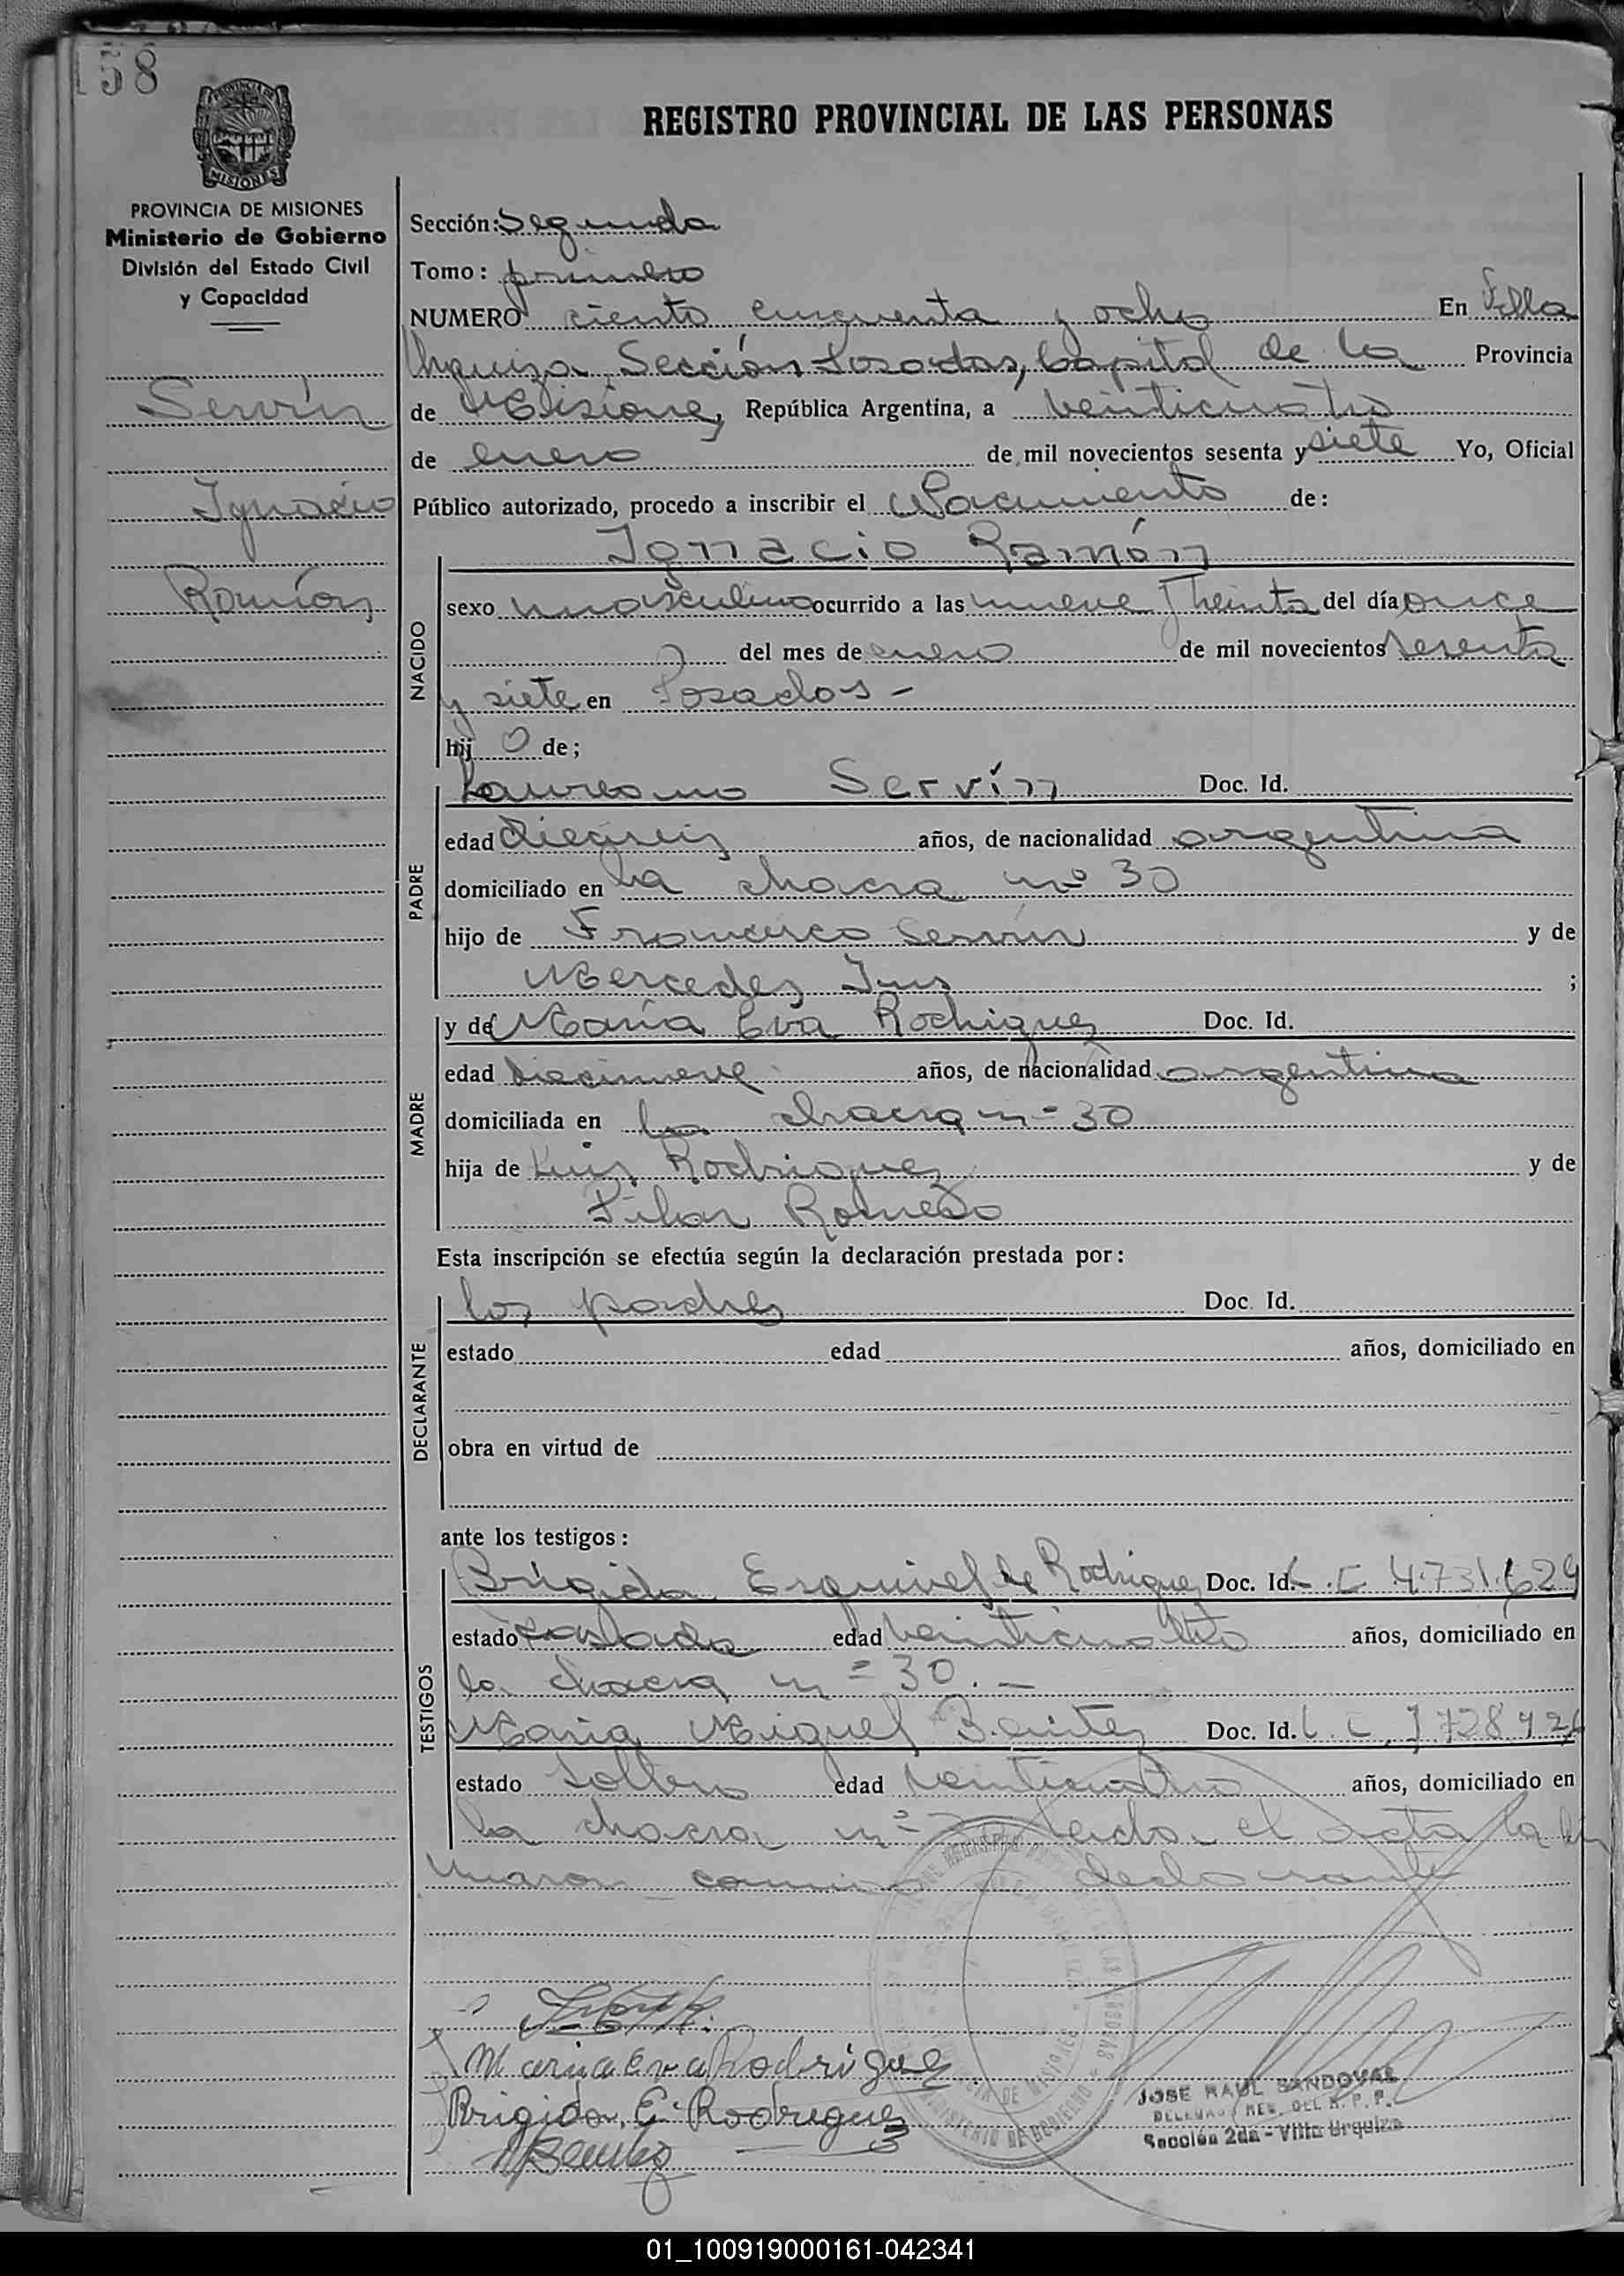 158
REGISTRO PROVINCIAL DE LAS PERSONAS
PROVINCIA DE MISIONES
Ministerio de Gobierno
División del Estado Civil
y Capacidad
Servín
Ignacio
Ramón
Sección: Segunda
Tomo: primero
NUMERO ciento cincuenta y ocho En Villa
Urquiza Sección Posadas, Capital de la Provincia
de Misiones, República Argentina, a veinticuatro
de enero de mil novecientos sesenta y siete Yo, Oficial
Público autorizado, procedo a inscribir el Nacimiento de:
NACIDO
Ignacio Ramón
sexo masculino ocurrido a las nueve y treinta del día once
del mes de enero de mil novecientos sesenta
y siete en Posadas -
hij o de;
PADRE
Laureano Servín Doc. Id.
edad dieciseis años, de nacionalidad argentina
domiciliado en la chacra nº 30
hijo de Francisco Servín y de
Mercedes ;
MADRE
y de María Eva Rodriguez Doc. Id.
edad diecinueve años, de nacionalidad argentina
domiciliada en la chacra nº 30
hija de Luis Rodriguez y de
Pilar Romero
Esta inscripción se efectúa según la declaración prestada por:
DECLARANTE
los padres Doc. Id.
estado edad años, domiciliado en
obra en virtud de
ante los testigos:
TESTIGOS
Brigida Esquivel de Rodriguez Doc. Id. L.C 4.731.629
estado casada edad veinticuatro años, domiciliado en
la chacra nº 30.-
Miguel Benitez Doc. Id.
estado soltero edad veinticuatro años, domiciliado en
la chacra nº leida el acta la
como declarante
Maria Eva Rodriguez
Brigida, E. Rodriguez
JOSE RAUL SANDOVAL
DEL R. P. P.
Sección 2da - Villa Urquiza
MISIONES
01_100919000161-042341